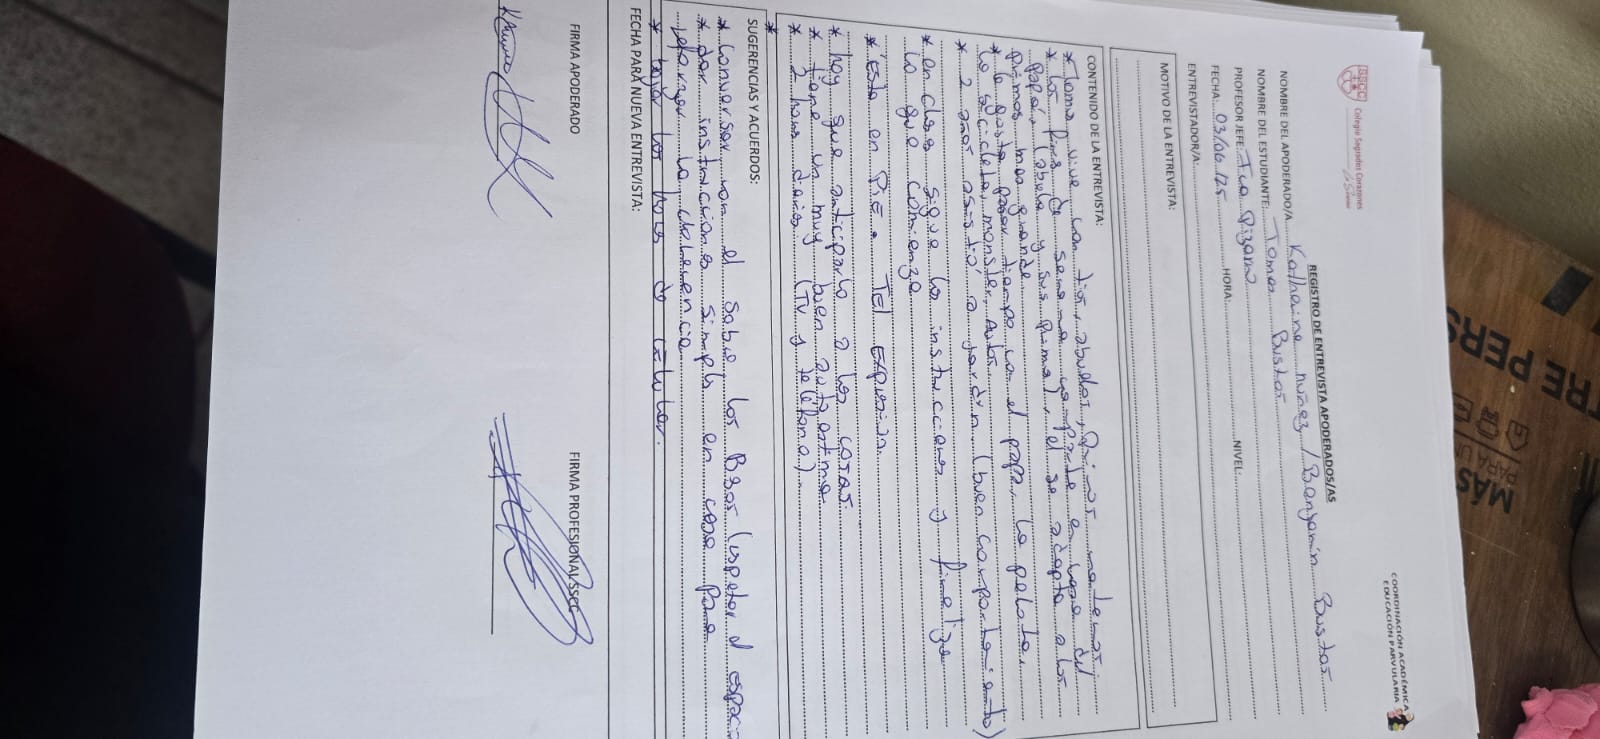 SSCC
Colegio Sagrados Corazones
La Serena
COORDINACIÓN ACADÉMICA
EDUCACIÓN PARVULARIA
REGISTRO DE ENTREVISTA APODERADOS/AS
NOMBRE DEL APODERADO/A Katherine nuñez / Benjamín Bustos
NOMBRE DEL ESTUDIANTE: Tomas Bustos
PROFESOR JEFE: Tia Pizarro
FECHA: 03/06/25 HORA: NIVEL:
ENTREVISTADOR/A:
MOTIVO DE LA ENTREVISTA:
CONTENIDO DE LA ENTREVISTA:
* Tomas vive con tios, abuelos, primos maternos.
* los fines de semana comparte en casa del
papá, (abuela y sus primas), el se adapta a los
primos mas grande.
* le gusta pasar tiempo con el papa, la pelota,
la bicicleta, monster, autos.
* 2 años asistió a jardín. (buen comportamiento)
* en clases sigue las instrucciones y finaliza
lo que comienza
* Esta en PIE. TEL Expresivo.
* hay que anticiparlo a las cosas.
* tiene un muy buen autoestima
* 2 horas diarias (TV y teléfono).
*
SUGERENCIAS Y ACUERDOS:
* Conversar con el sobre los (respetar el espacio
* dar instrucciones simples en casa para
reforzar la obediencia
* bajar las horas de celular.
FECHA PARA NUEVA ENTREVISTA:
FIRMA APODERADO
FIRMA PROFESIONAL SSCC
MÁS
PARA UN
TRE PERS